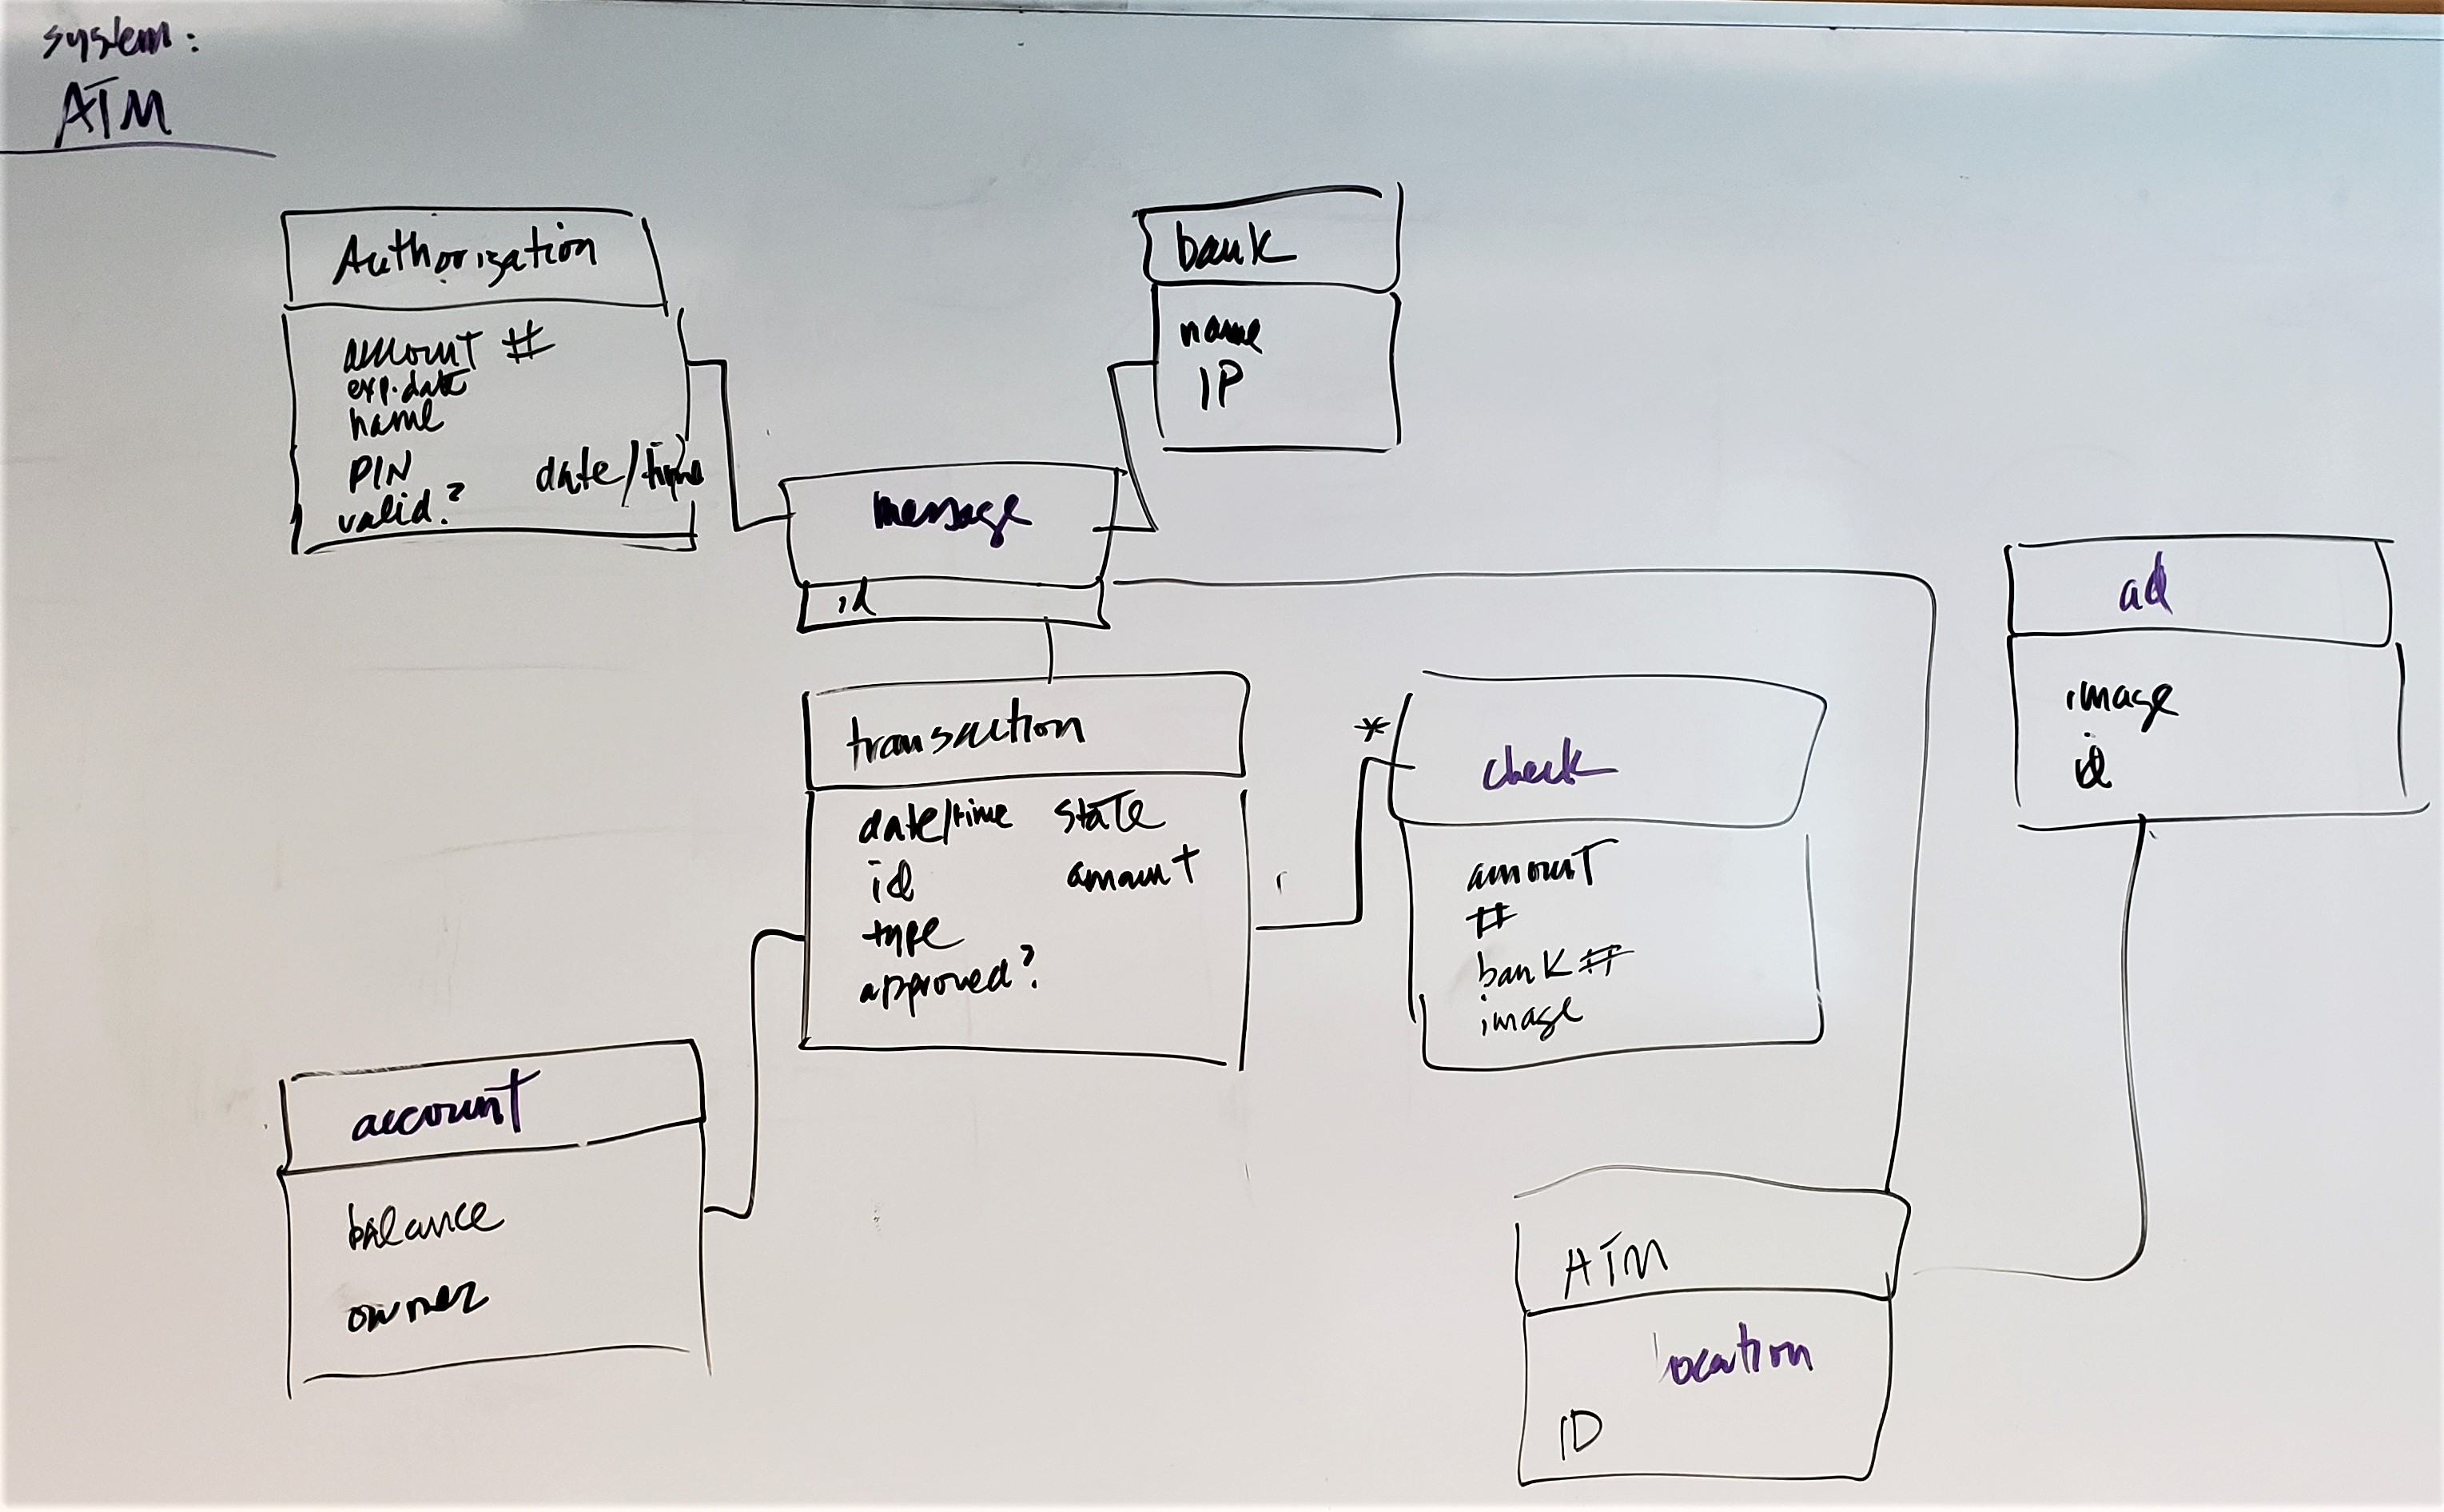 system:
ATM
Authorization
account #
exp. date
name
PIN date/time
valid?
bank
name
IP
message
id
transaction
date/time state
id amount
type
approved?
*
check
amount
#
bank #
image
ad
image
id
account
balance
owner
ATM
location
ID